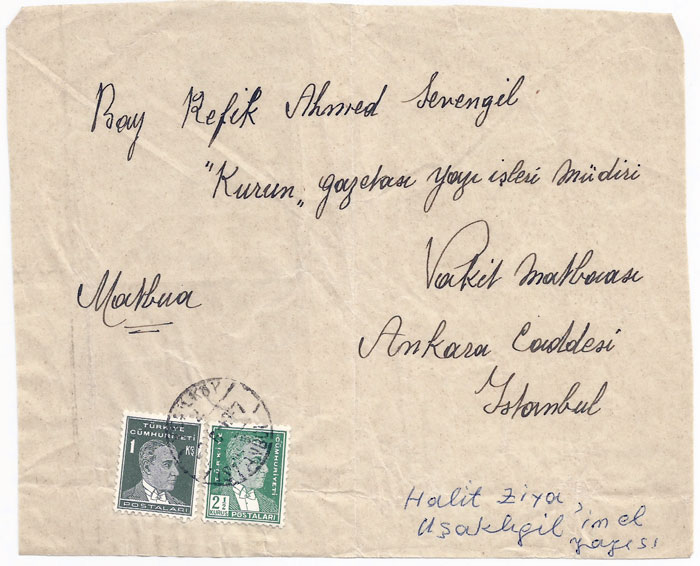 Bay Refik Ahmed Sevengil
"Kurun„ gazetası yazı işleri müdiri
Vakit matbaası
Matbua
Ankara Caddesi
Istanbul
TÜRKİYE
CÜMHURİYETİ
1 KŞ
POSTALARI
TÜRKİYE
CÜMHURİYETİ
2½
KURUŞ
POSTALARI
Halit Ziya
Uşaklıgil'in el
yazısı